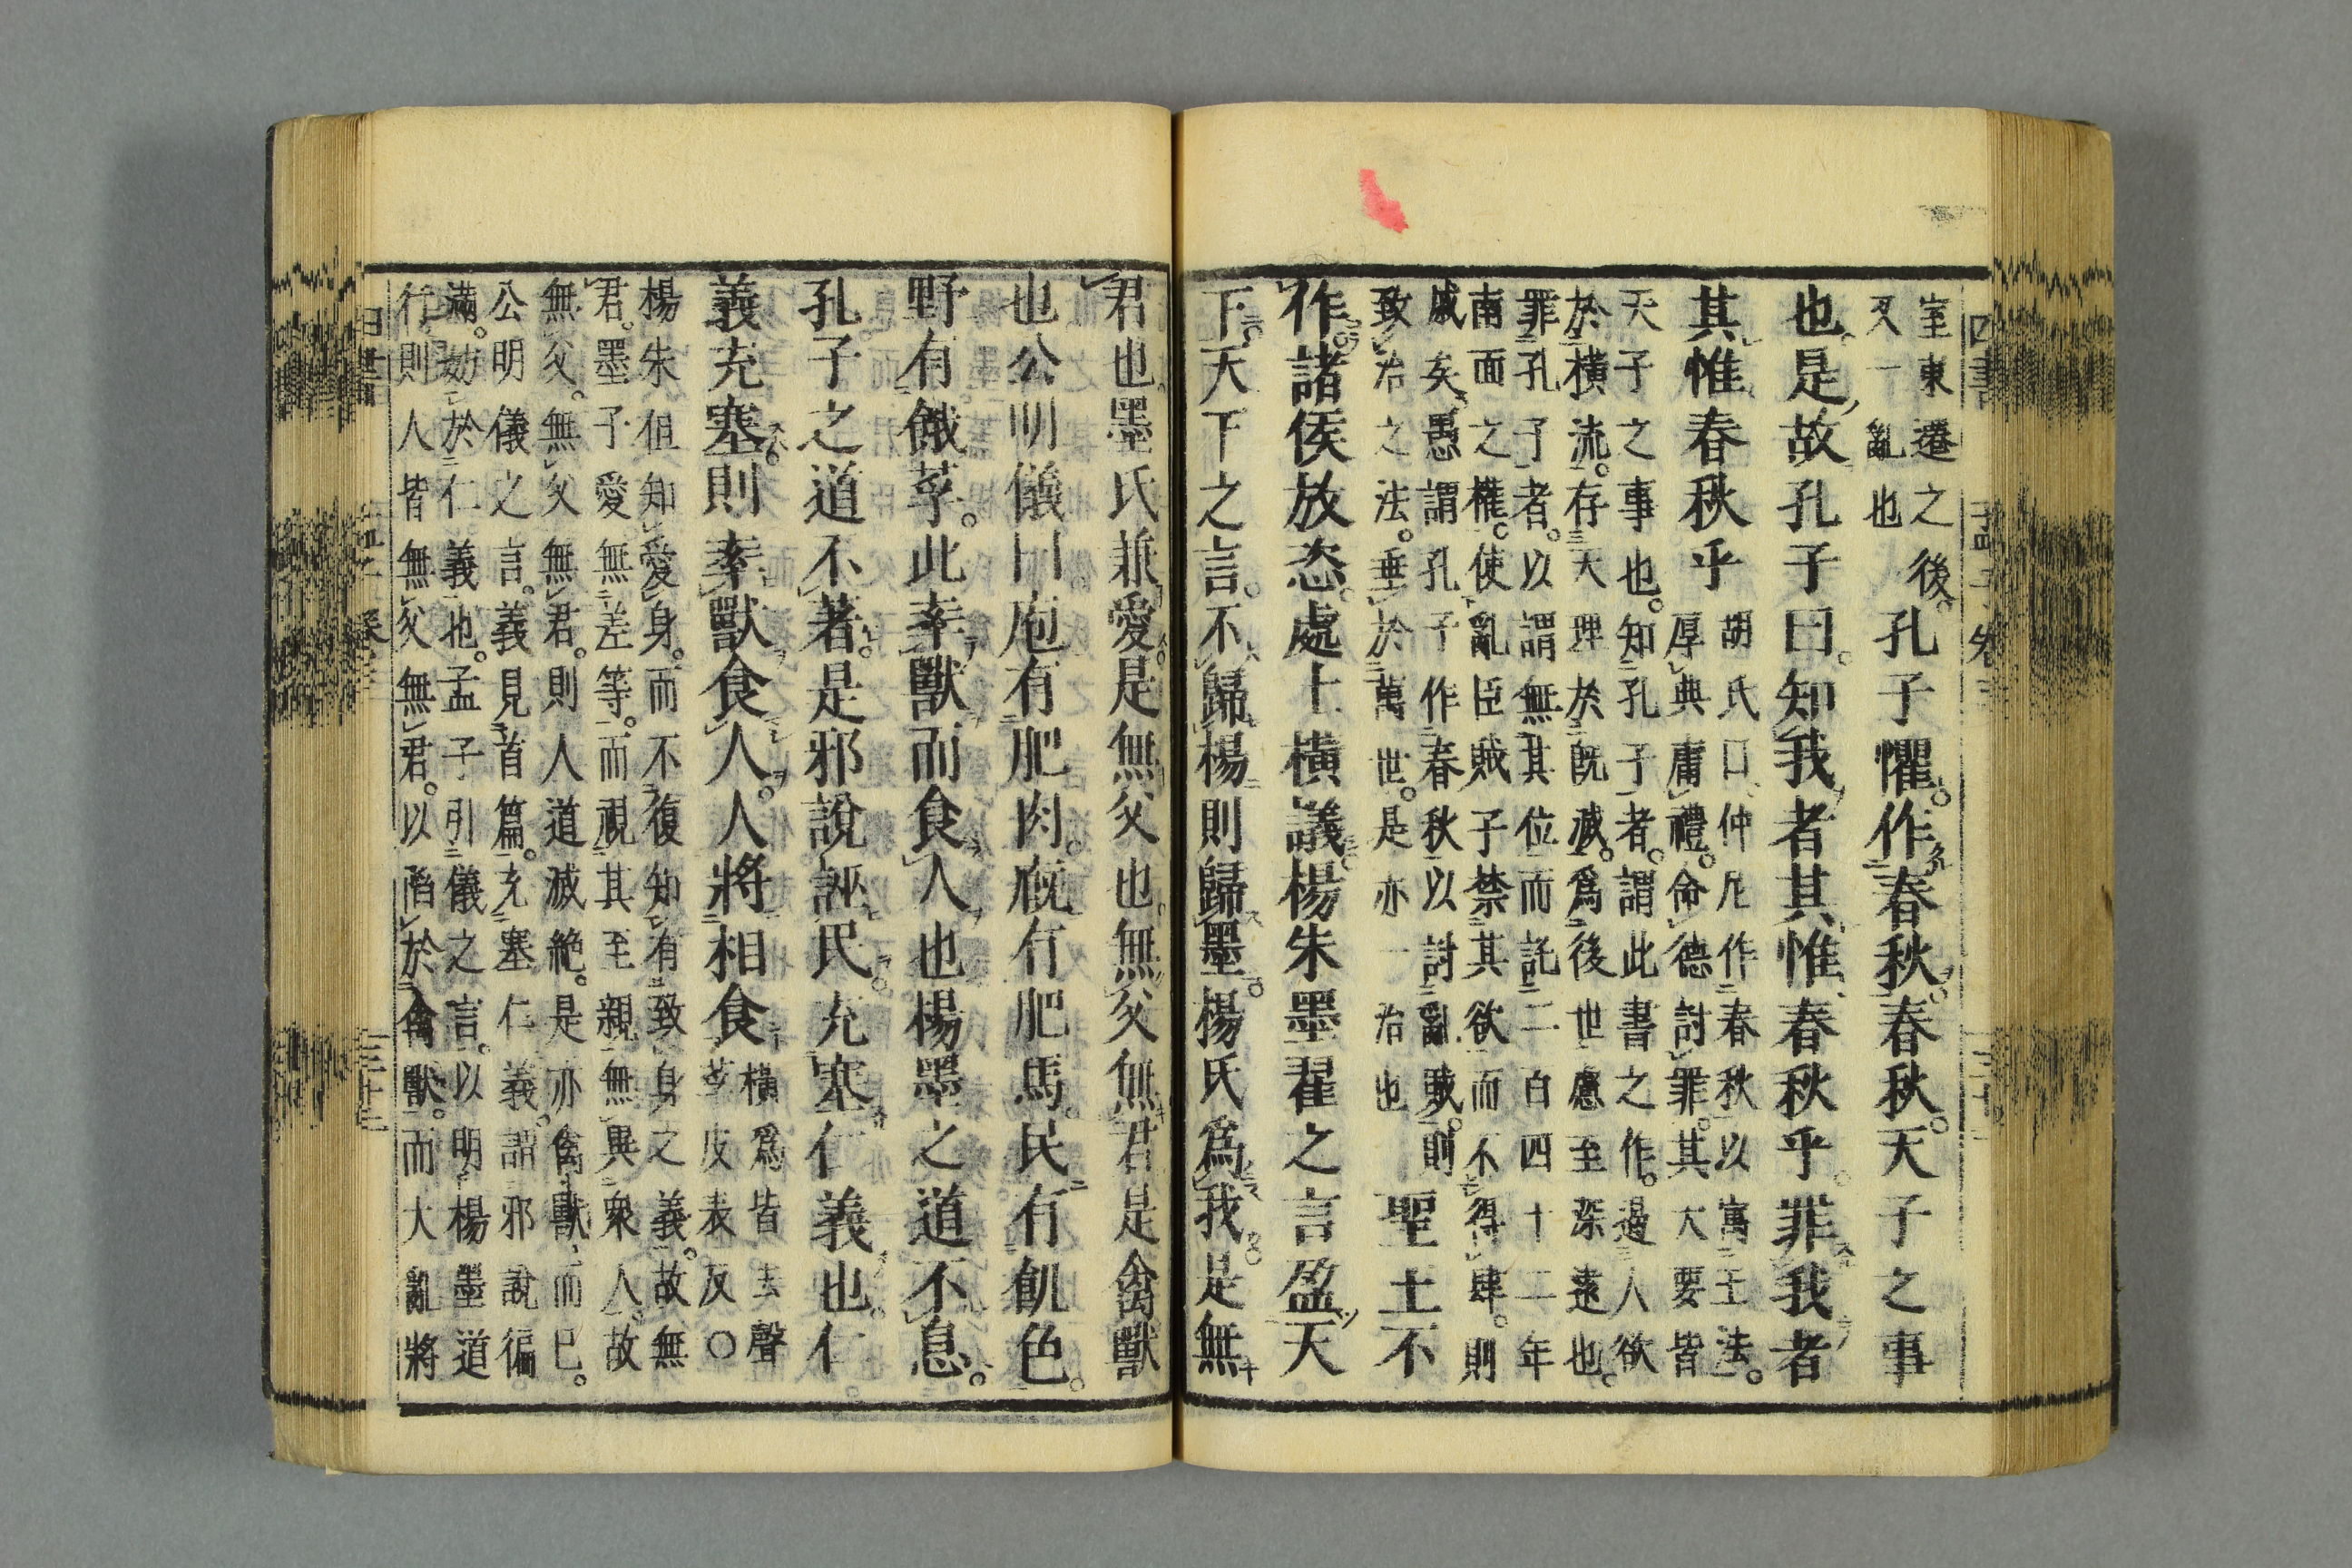 室東遷之後。
又一亂也
孔子懼。作春秋。春秋。天子之事
也。是故孔子曰。知我者其惟春秋乎。罪我者
其惟春秋乎
胡氏曰、仲尼作春秋以寓王法。
厚典庸禮。命德討罪。其大要皆
天子之事也。知孔子者。謂此書之作。遏人欲
於橫流。存天理於既滅。爲後世慮至深遠也。
罪孔子者。以謂無其位而託二百四十二年
南面之權。使亂臣賊子禁其欲而不得肆。則
戚矣。愚謂孔子作春秋以討亂賊。則
致治之法。垂於萬世。是亦一治也
聖王不
作。諸侯放恣。處士橫議。楊朱墨翟之言盈天
下。天下之言。不歸楊則歸墨。楊氏爲我。是無
君也。墨氏兼愛。是無父也。無父無君是禽獸
也公明儀曰。庖有肥肉。廐有肥馬。民有飢色。
野有餓莩。此率獸而食人也楊墨之道不息。
孔子之道不著。是邪說誣民。充塞仁義也。仁
義充塞。則率獸食人。人將相食
橫爲皆去聲
莩皮表反○
楊朱但知愛身。而不復知有致身之義。故無
君。墨子愛無差等。而視其至親無異衆人。故
無父。無父無君。則人道滅絕。是亦禽獸而已。
公明儀之言。義見首篇。充塞仁義。謂邪說徧
滿。妨於仁義也。孟子引儀之言。以明楊墨道
行。則人皆無父無君。以陷於禽獸。而大亂將